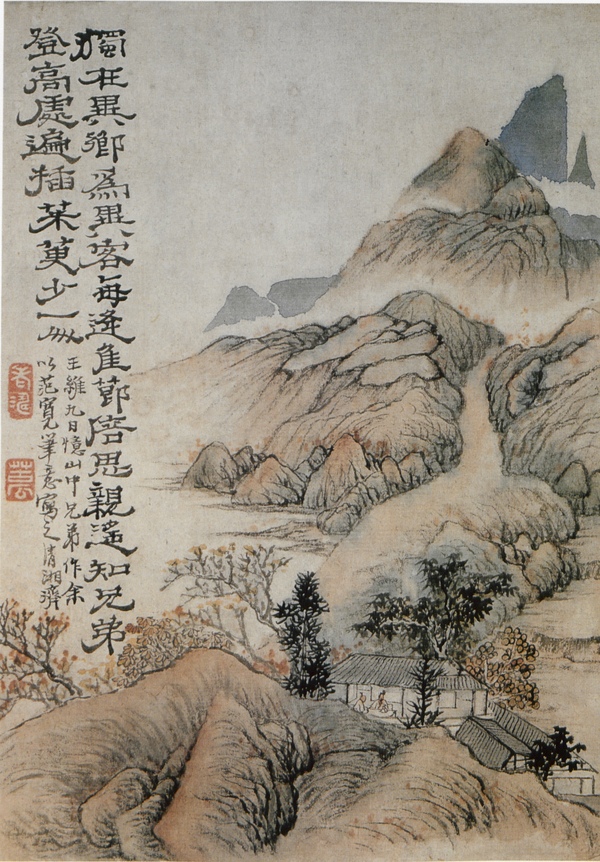 獨在異鄉為異客每逢隹節陪思親遙知兄弟
登高處遍插茱萸少一人
王維九日憶山中兄弟作余
以范寬筆意寫之清湘濟